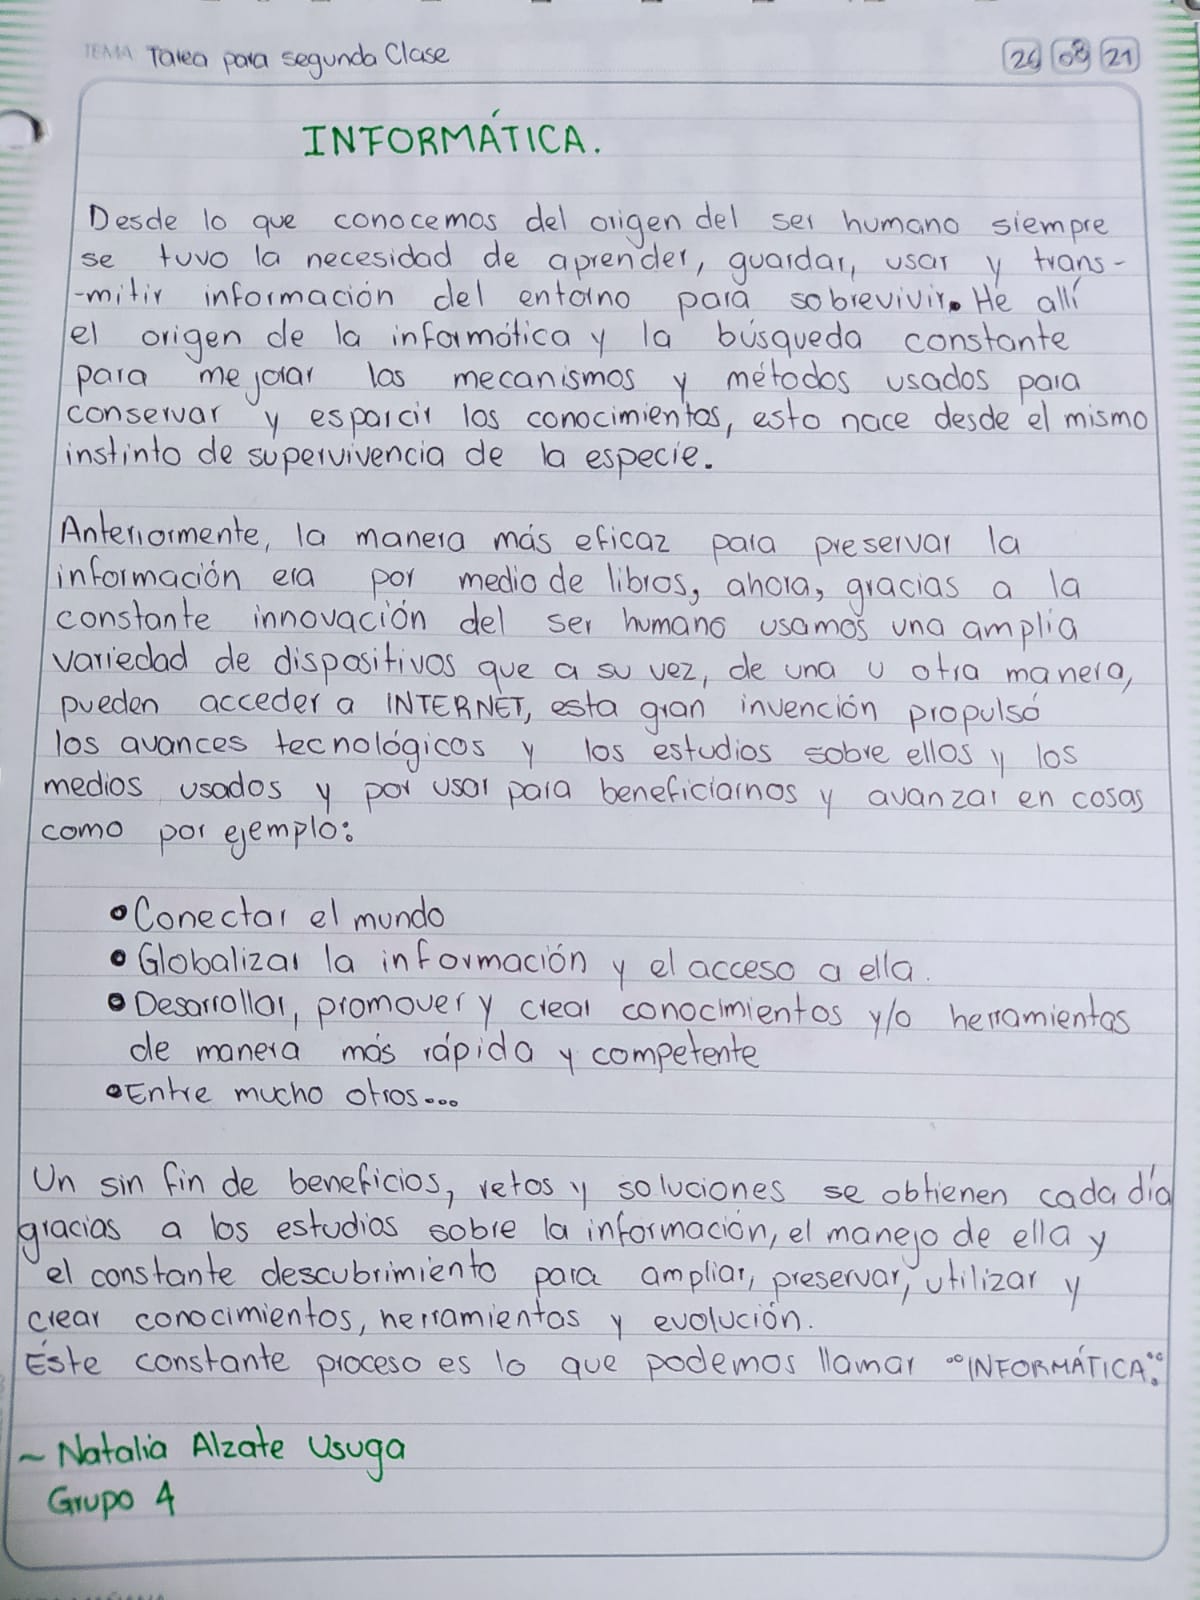 TEMA Tarea para segunda Clase
26 08 21
INFORMÁTICA.
Desde lo que conocemos del origen del ser humano siempre
se tuvo la necesidad de aprender, guardar, usar y trans-
-mitir información del entorno para sobrevivir. Hé allí
el origen de la informática y la búsqueda constante
para mejorar los mecanismos y métodos usados para
conservar y esparcir los conocimientos, esto nace desde el mismo
instinto de supervivencia de la especie.
Anteriormente, la manera más eficaz para preservar la
información era por medio de libros, ahora, gracias a la
constante innovación del ser humano usamos una amplia
variedad de dispositivos que a su vez, de una u otra manera,
pueden acceder a INTERNET, esta gran invención propulsó
los avances tecnológicos y los estudios sobre ellos y los
medios usados y por usar para beneficiarnos y avanzar en cosas
como por ejemplo:
• Conectar el mundo
• Globalizar la información y el acceso a ella.
• Desarrollar, promover y crear conocimientos y/o herramientas
de manera más rápida y competente
• Entre mucho otros...
Un sin fin de beneficios, retos y soluciones se obtienen cada día
gracias a los estudios sobre la información, el manejo de ella y
el constante descubrimiento para ampliar, preservar, utilizar y
crear conocimientos, herramientas y evolución.
Éste constante proceso es lo que podemos llamar "INFORMÁTICA".
~ Natalia Alzate Usuga
Grupo 4